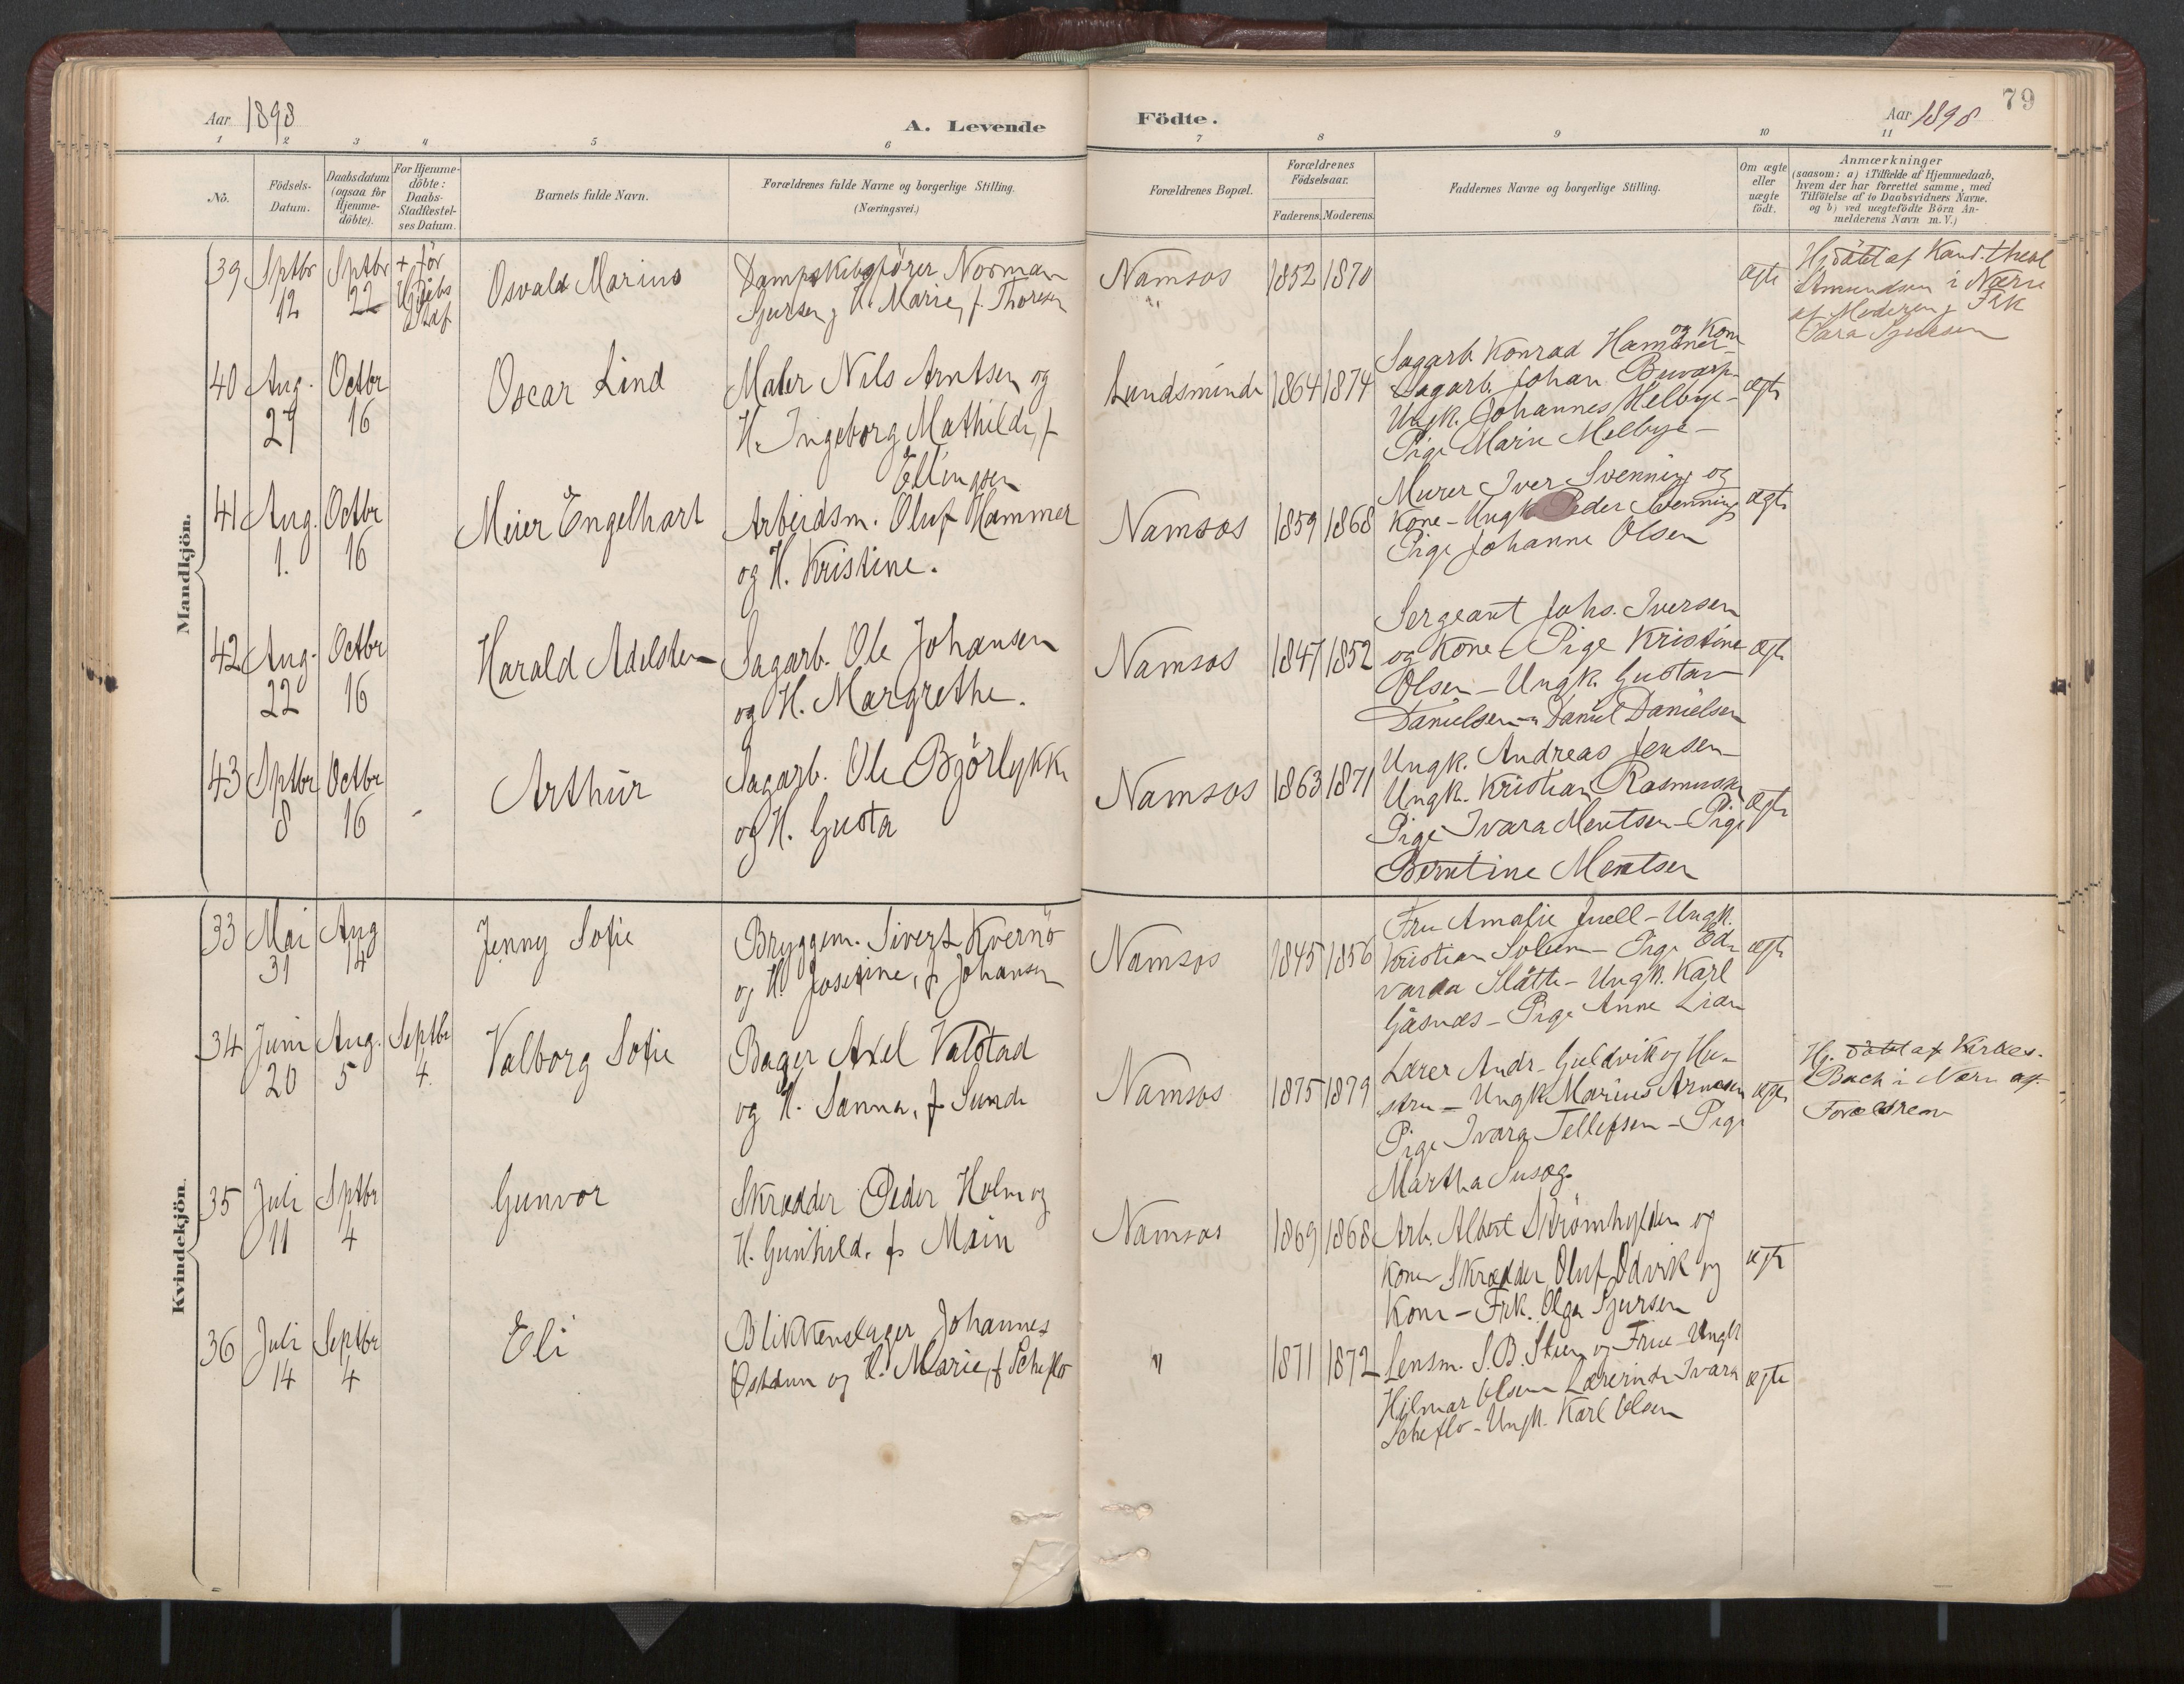 Aar 1898
A. Levende
Födte.
Aar 1898
79
1 2 3 4 5 6 7 8 9 10 11
No.
Födsels-
Datum.
Daabsdatum
(ogsaa for
Hjemme-
döbte).
For Hjemme-
döbte:
Daabs-
Stadfæstel-
ses Datum.
Barnets fulde Navn.
Forældrenes fulde Navne og borgerlige Stilling.
(Næringsvei.)
Forældrenes Bopæl.
Forældrenes
Födselsaar.
Faderens. Moderens.
Faddernes Navne og borgerlige Stilling.
Om ægte
eller
uægte
födt.
Anmærkninger
(saasom: a) i Tilfælde af Hjemmedaab,
hvem der har forrettet samme, med
Tilföielse af to Daabsvidners Navne.
og b) ved uægtefödte Börn An-
melderens Navn m. V.)
Mandkjön.
39 Sptbr 12
Sptbr 22
+ för
Hj.döbs
Staf
Osvald Marius
Dampskibsförer Norman
Sjursen og H. Marie, f. Thoresen
Namsos
1852 1870
ægte
Hj. döbt af Kand. theol
Amundsen i Nærv
af Moderen og Frk
Sara Sjursen
40 Aug. 27
Octbr 16
Oscar Lind
Maler Nils Arntsen og
H. Ingeborg Mathilde, f
Ellingsen
Lundsminde
1864 1874
Sagarb. Konrad Hammer og Kone
Sagarb. Johan Buvarp-
Ungk. Johannes Melbye-
Pige Marie Melbye-
ægte
41 Aug. 1.
Octbr 16
Meier Engelhart
Arbeidsm. Oluf Hammer
og H. Kristine.
Namsos
1859 1868
Murer Iver Svenning og
Kone - Ungk Peder Svenning
Pige Johanne Olsen
ægte
42 Aug. 22
Octbr 16
Harald Adelsten
Sagarb. Ole Johansen
og H. Margrethe.
Namsos
1847 1852
Sergeant Johs. Iversen
og Kone - Pige Kristine
Olsen - Ungk. Gustav
Danielsen - " Daniel Danielsen
ægte
43 Sptbr 8
Octbr 16
Arthur
Sagarb. Ole Björlykke
og H. Gusta
Namsos
1863 1871
Ungk. Andreas Jensen
Ungk. Kristian Rasmussen
Pige Ivara Mentsen - Pige
Berntine Mentsen
ægte
Kvindekjön.
33 Mai 31
Aug 14
Jenny Sofie
Bryggem. Sivert Kvernö
og H. Josefine, f. Johansen
Namsos
1845 1856
Fru Amalie Juell - Ungk.
Kristian Solem - Pige Ed-
varda Slätte - Ungk. Karl
Gåsnes - Pige Anne Lian
ægte
34 Juni 20
Aug. 5
Septbr 4.
Valborg Sofie
Bager Axel Valstad
og H. Sanna, f Sunde
Namsos
1875 1879
Lærer Andr. Gjeldvik og Hu-
stru - Ungk. Marius Arnesen
Pige Ivara Tellefsen - Pige
Martha Susæg.
ægte
Hj. döbt af Kirkes.
Bach i Nærv af.
Forældrene
35 Juli 11
Sptbr 4
Gunvor
Skrædder Peder Holm og
H. Gunhild, f. Moin
Namsos
1869 1868
Arb. Albert Strömhylden og
Kone - Skrædder Oluf Ödvik og
Kone - Frk. Olga Sjursen
ægte
36 Juli 14
Septbr 4
Eli
Blikkenslager Johannes
Østdun og H. Marie, f Scheflo
"
1871 1872
Lensm. S. B. Steen og Frue - Ungk
Hilmar Olsen Lærerinde Ivara
Scheflo - Ungk. Karl Olsen
ægte